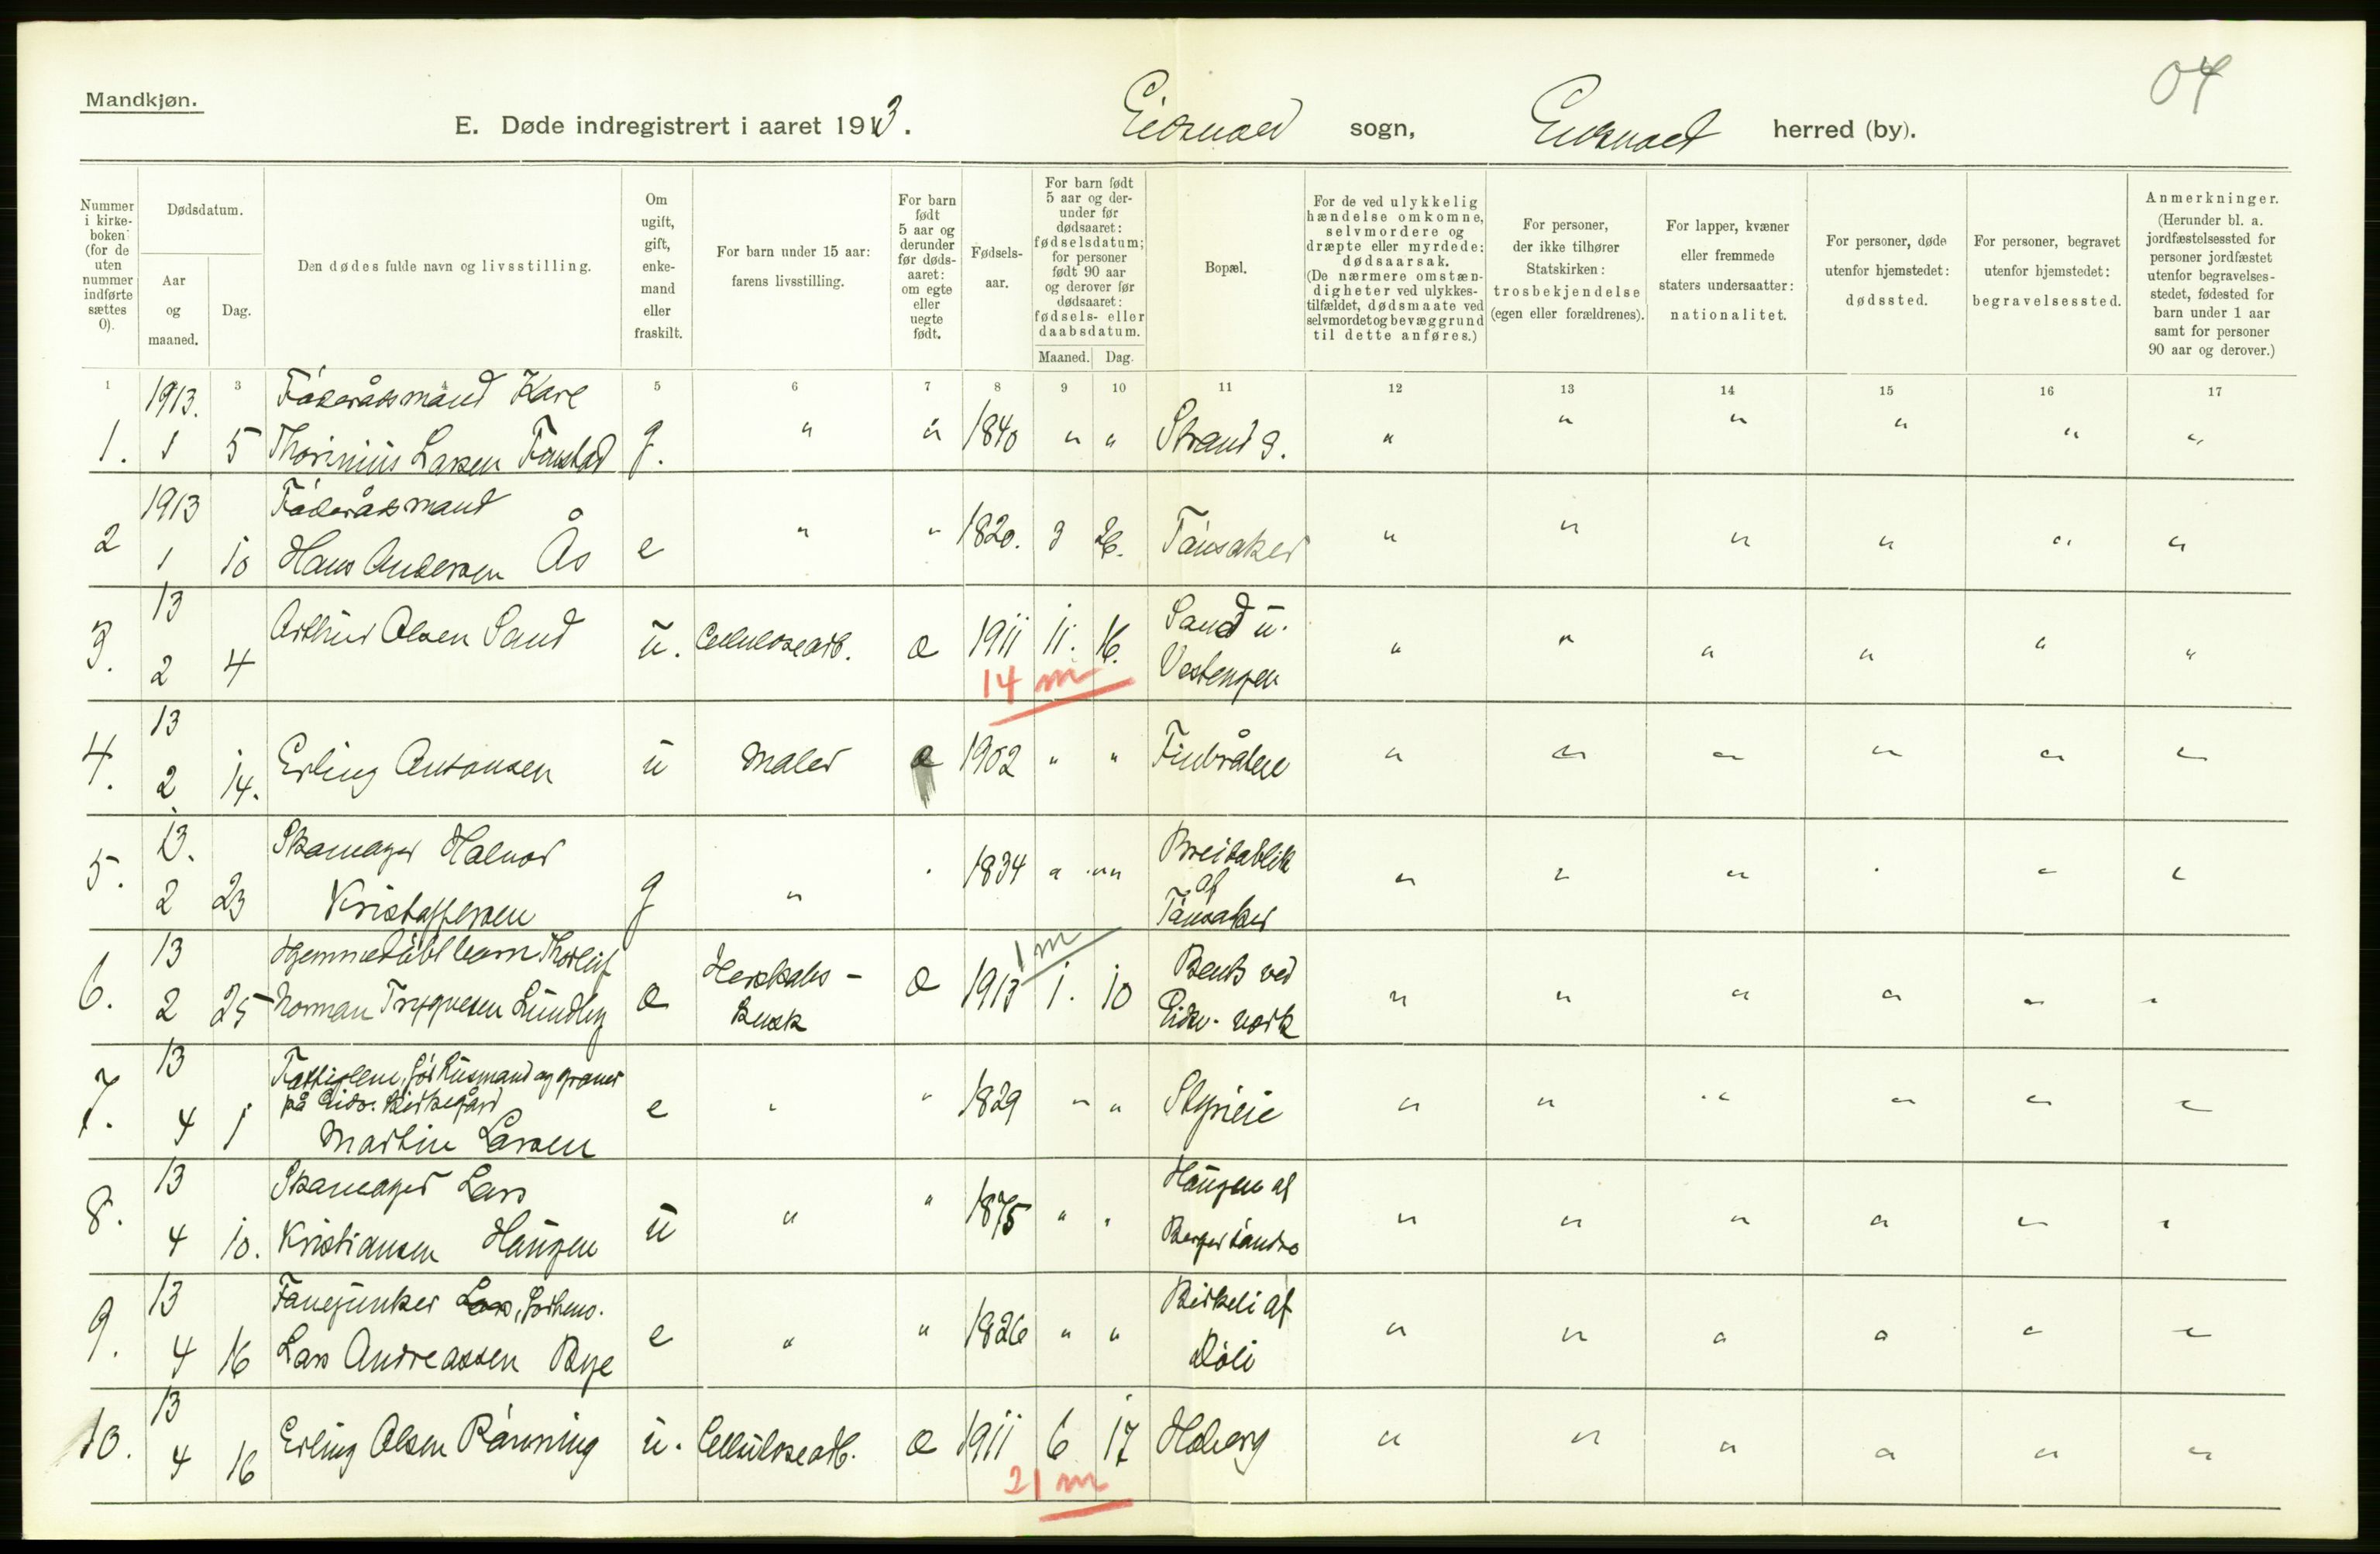 Mandkjøn.
04
E. Døde indregistrert i aaret 1913. Eidsvold sogn, Eidsvold herred (by).
Nummer i kirkeboken (for de uten nummer indførte sættes 0).
Dødsdatum.
Aar og maaned.
Dag.
Den dødes fulde navn og livsstilling.
Om ugift, gift, enkemand eller fraskilt.
For barn under 15 aar: farens livsstilling.
For barn født 5 aar og derunder før dødsaaret: om egte eller uegte født.
Fødselsaar.
For barn født 5 aar og derunder før dødsaaret: fødselsdatum; for personer født 90 aar og derover før dødsaaret: fødsels- eller daabsdatum.
Maaned. Dag.
Bopæl.
For de ved ulykkelig hændelse omkomne, selvmordere og dræpte eller myrdede: dødsaarsak. (De nærmere omstændigheter ved ulykkestilfældet, dødsmaate ved selvmordet og bevæggrund til dette anføres.)
For personer, der ikke tilhører Statskirken: trosbekjendelse (egen eller forældrenes).
For lapper, kvæner eller fremmede staters undersaatter: nationalitet.
For personer, døde utenfor hjemstedet: dødssted.
For personer, begravet utenfor hjemstedet: begravelsessted.
Anmerkninger. (Herunder bl. a. jordfæstelsessted for personer jordfæstet utenfor begravelsesstedet, fødested for barn under 1 aar samt for personer 90 aar og derover.)
1 3 4 5 6 7 8 9 10 11 12 13 14 15 16 17
1913. Föderådsmand Karl
1. 1 5 Thorinius Larsen Finstad g. " " 1840 " " Strand g. " " " " " "
1913 Föderådsmand
2 1 10 Hans Andersen Ås e " " 1820. 9 26. Tönsaker " " " " " "
13 Sand u.
3. 2 4 Arthur Olsen Sand u. Cellulosearb. e 1911 11. 16. Vestengen " " " " " "
14 m
13
4. 2 14. Erling Antonsen u Maler e 1902 " " Finbråten " " " " " "
13. Skomager Halvor Breidablik af
5. 2 23 Kristoffersen g " " 1834 " " Tönsaker " " " " " "
1 m
13 Hjemmedöbt barn Thorleif Herskabs- Bents ved
6. 2 25 Norman Trygvesen Lundby e kusk e 1913 1. 10 Eidsv. værk " " " " " "
13 Fattiglem, för husmand og graver
på Eidsv. Kirkegård
7. 4 1 Martin Larsen e " " 1829 " " Styrieie " " " " " "
13 Skomager Lars Haugen af
8. 4 10. Kristiansen Haugen u " " 1875 " " " " " " " "
13 Fanejunker Lars, Birkeli af
9. 4 16 Lars Andreassen Bye e " " 1826 " " Döli " " " " " "
13
10. 4 16 Erling Olsen Rönning u. Cellulosearb. e 1911 6 17 Hoberg " " " " " "
21 m